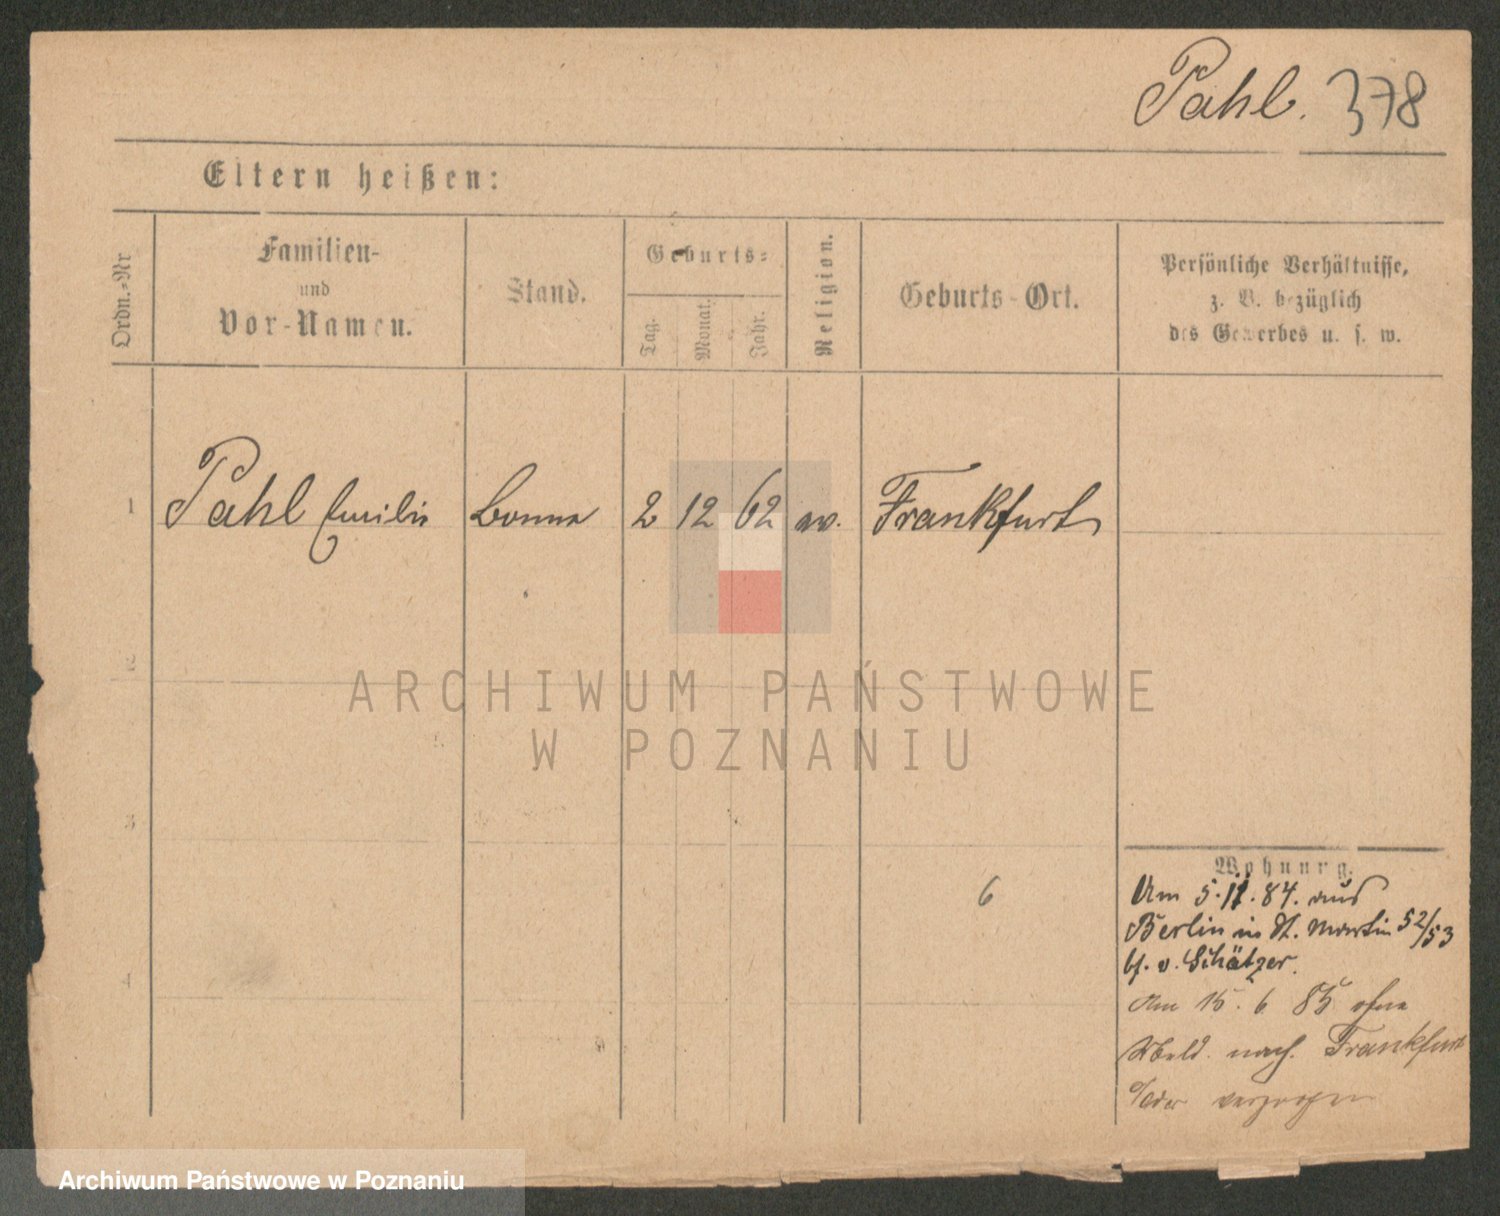 Pahl. 378
Eltern heißen:
Ordn.-Nr
Familien-
und
Vor-Namen.
Stand.
Geburts-
Tag.
Monat.
Jahr.
Religion.
Geburts-Ort.
Persönliche Verhältnisse,
z. B. bezüglich
des Gewerbes u. s. w.
1 Pahl Emilie Bonne 2 12 62 ev. Frankfurt
2
ARCHIWUM PAŃSTWOWE
W POZNANIU
3
Wohnung.
6
Am 5.11.84. aus
Berlin in St. Martin 52/53
b. v. Schätzer.
4
Am 15. 6 85 ohne
Abmeld. nach Frankfurt
Oder verzogen
Archiwum Państwowe w Poznaniu